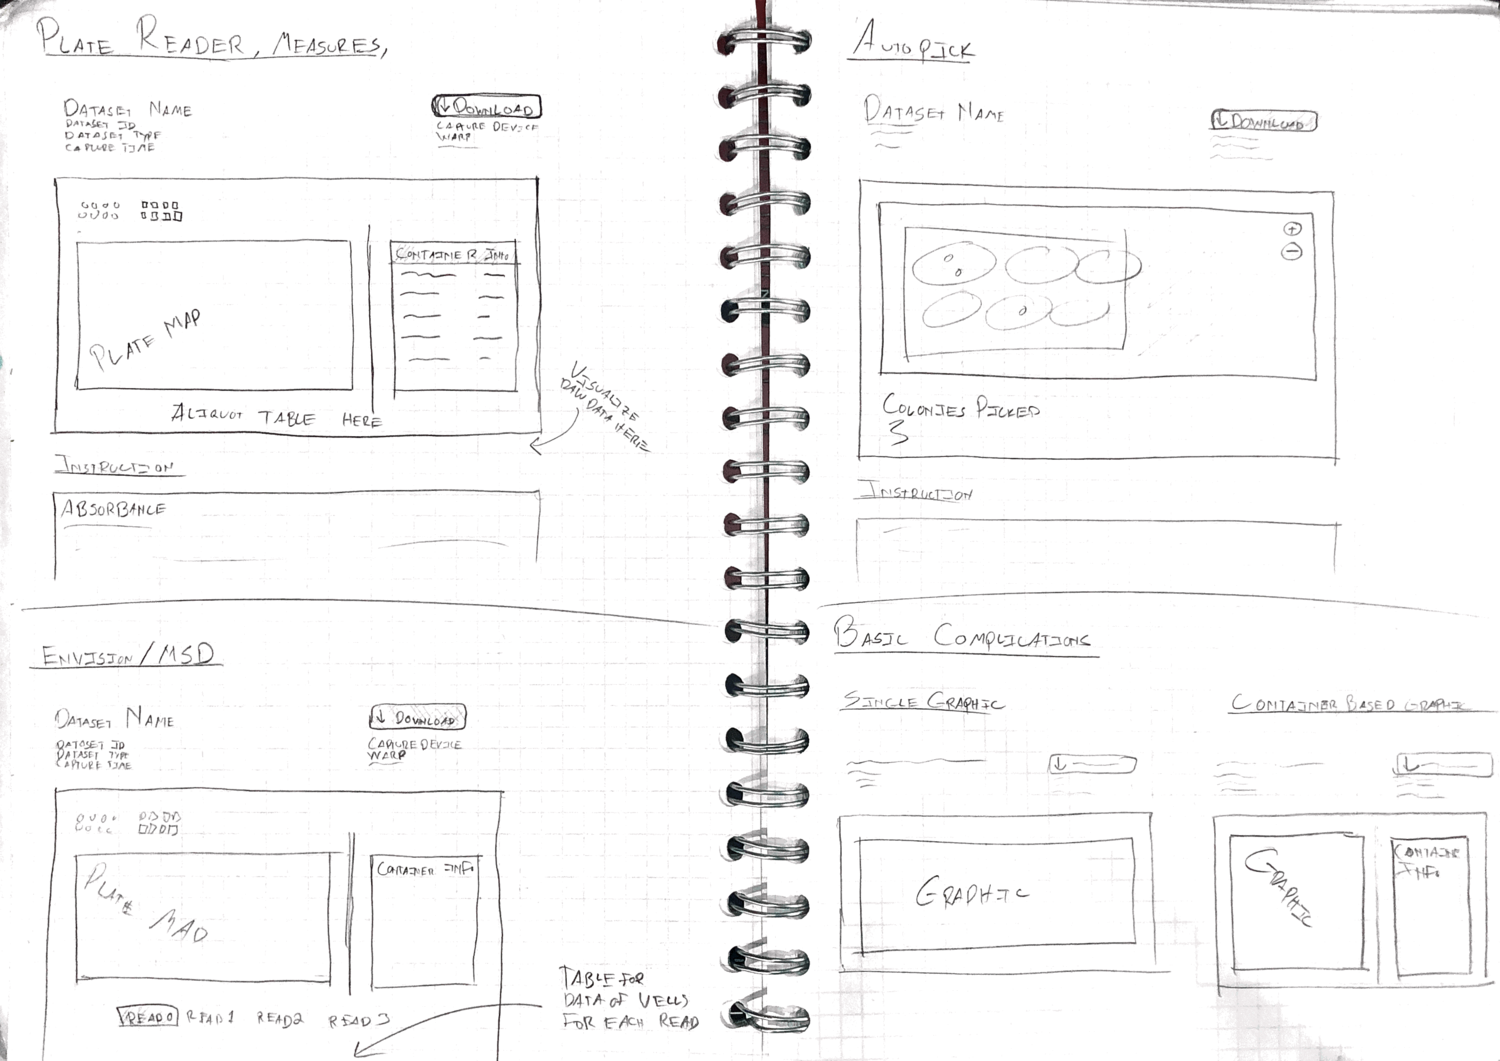 PLATE READER, MEASURES,
DATASET NAME
DATASET ID
DATASET TYPE
CAPTURE TIME
DOWNLOAD
CAPTURE DEVICE
WARP
PLATE MAP
CONTAINER INFO
ALIQUOT TABLE HERE
VISUALIZE
RAW DATA HERE
INSTRUCTION
ABSORBANCE
ENVISION/MSD
DATASET NAME
DATASET ID
DATASET TYPE
CAPTURE TIME
DOWNLOAD
CAPTURE DEVICE
WARP
PLATE
MAP
CONTAINER INFO
READ0 READ1 READ2 READ3
TABLE FOR
DATA OF WELLS
FOR EACH READ
AUTOPICK
DATASET NAME
DOWNLOAD
+
−
COLONIES PICKED
3
INSTRUCTION
BASIC COMPLICATIONS
SINGLE GRAPHIC
GRAPHIC
CONTAINER BASED GRAPHIC
GRAPHIC
CONTAINE
INFO